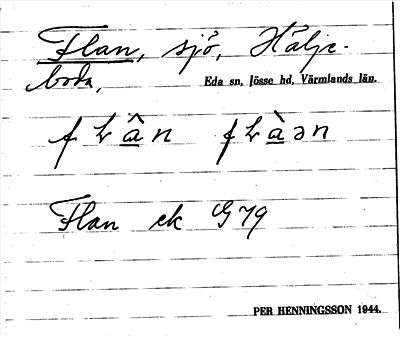 Flan, sjö, Hälje-
boda,
Eda sn, Jösse hd, Värmlands län.
Flan ek G 79
PER HENNINGSSON 1944.